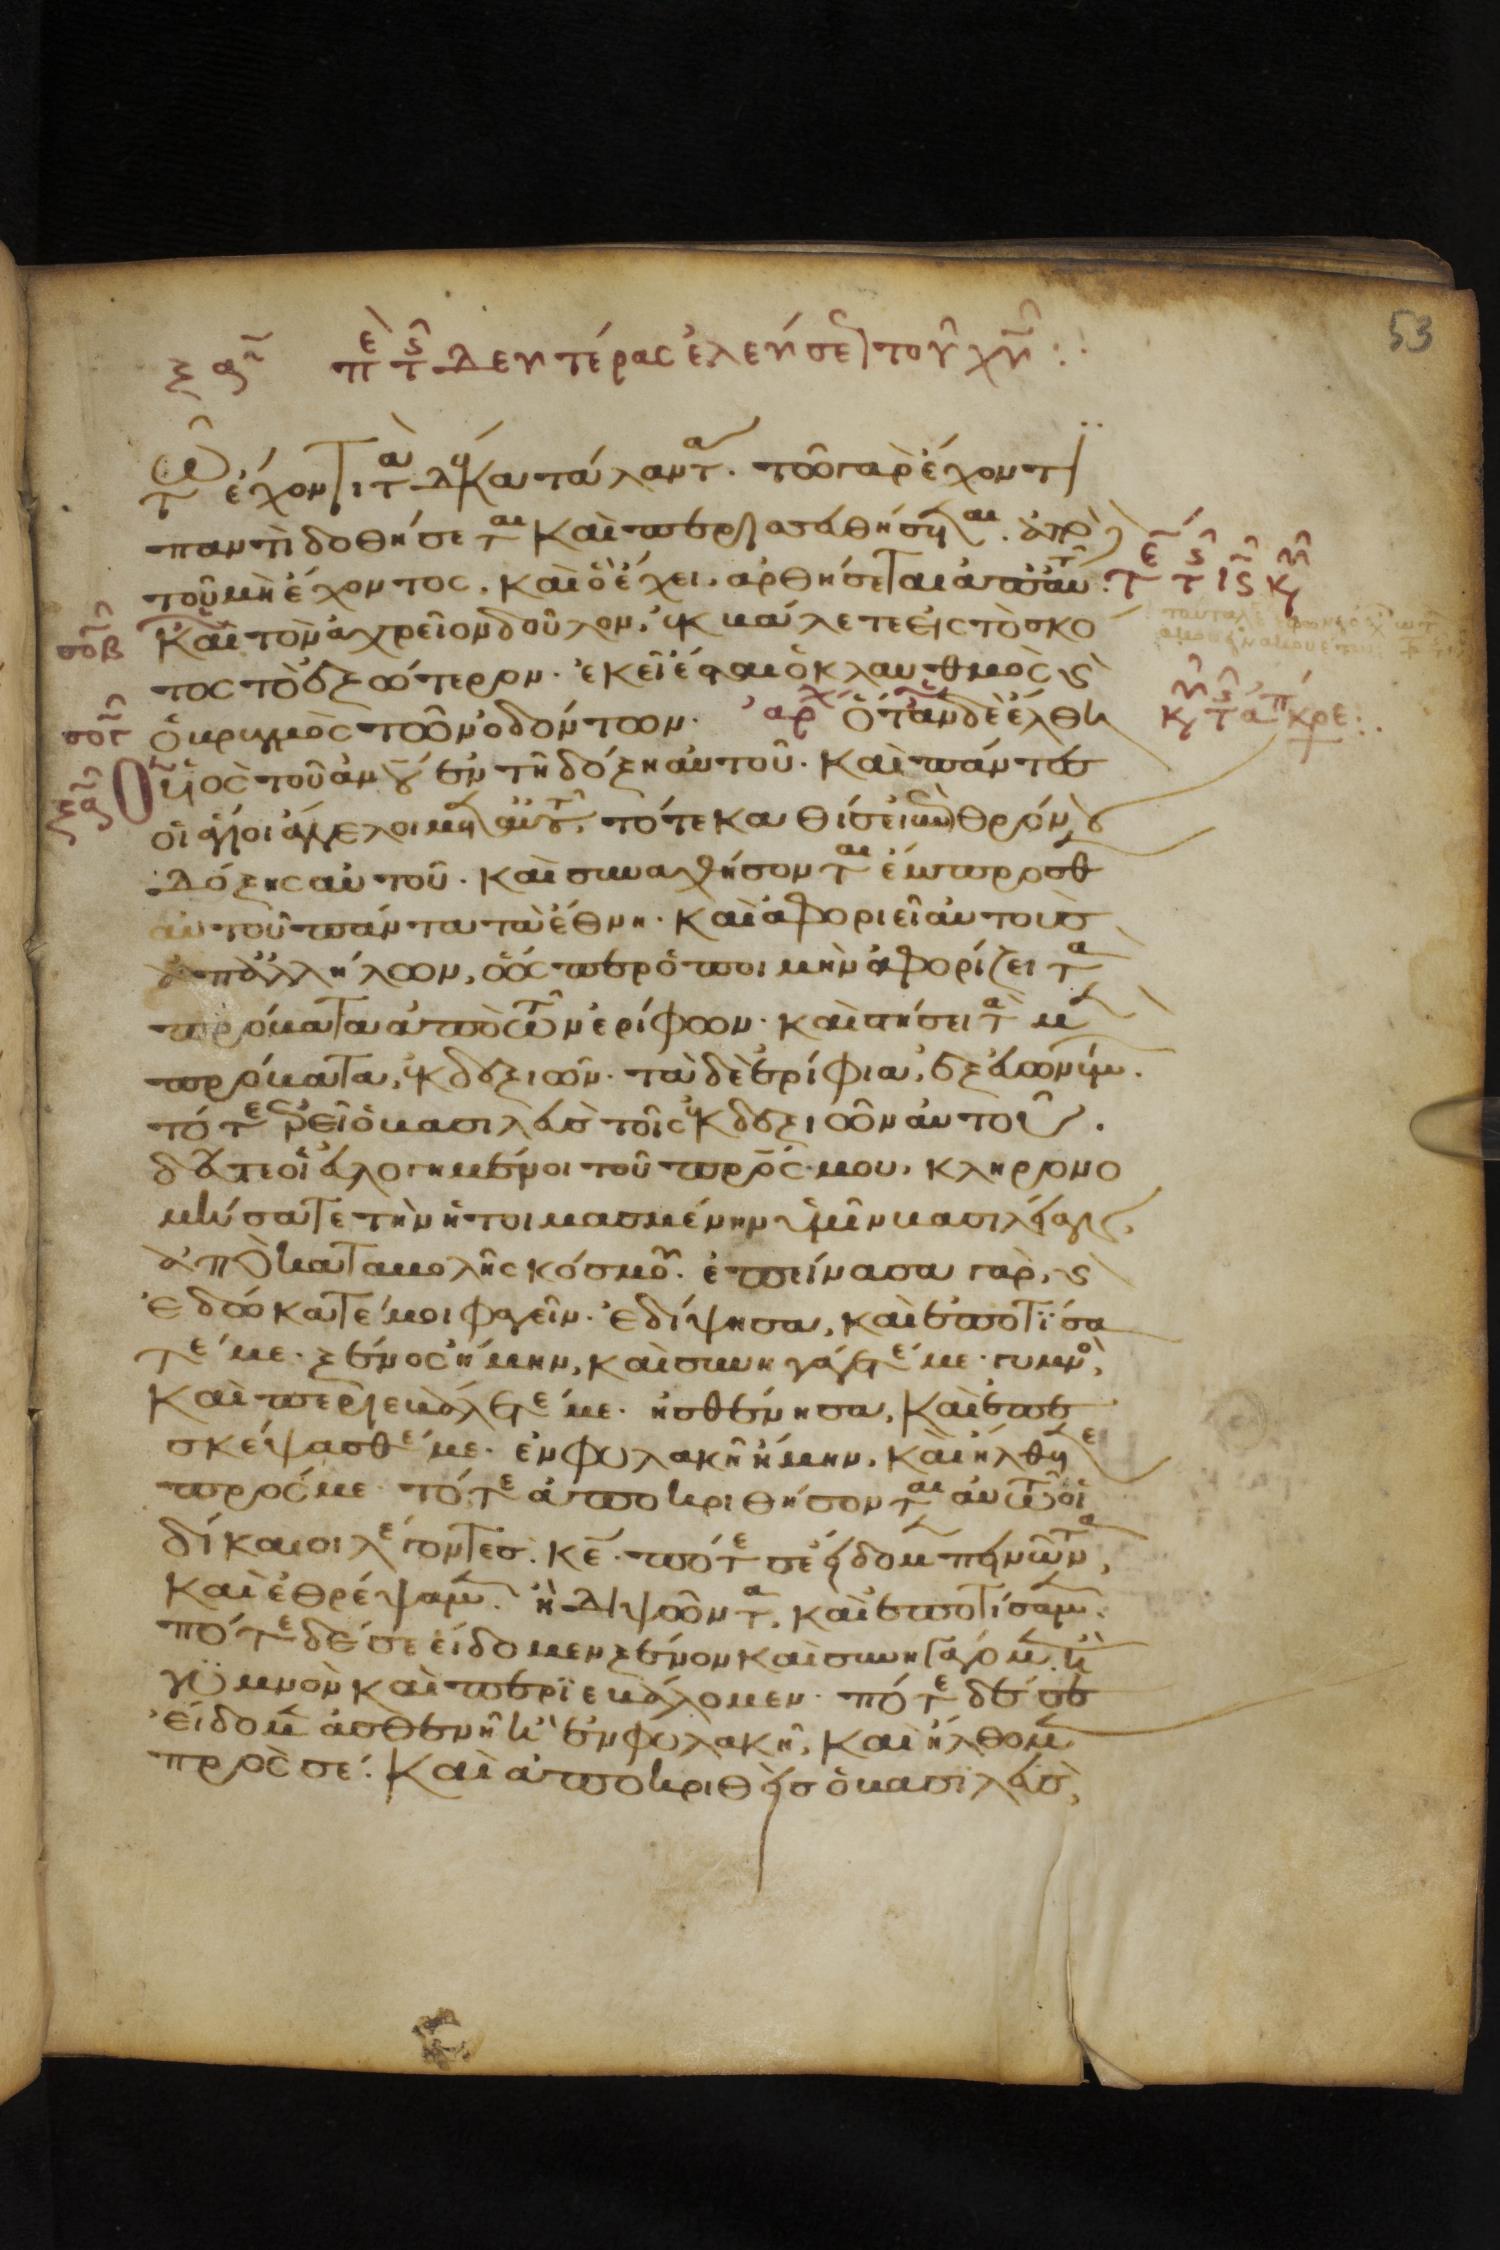 53
ξα πε τς δευτέρας ἐλεύσε τοῦ χυ:·
τῶ ἔχοντι τὰ δέκα τάλαντα. τῶ γὰρ ἔχοντι
παντὶ δοθήσεται καὶ περισσευθήσεται. ἀπὸ
τοῦ μὴ ἔχοντος, καὶ ὃ ἔχει, ἀρθήσεται ἀπ' αὐτ.
σοβ καὶ τὸν ἀχρεῖον δοῦλον, ἐκβάλετε εἰς τὸ σκό
τος τὸ ἐξώτερον. ἐκεῖ ἔσται ὁ κλαυθμὸς ϛ
σογ ὁ βριγμὸς τῶν ὀδόντων. ἀρχ ὅταν δὲ ἔλθη
ὁ υἱὸς τοῦ ἀνου ἐν τῆ δόξη αὐτοῦ. καὶ πάντες
οἱ ἅγιοι ἄγγελοι μετ' αὐτ, τότε καθίσει ἐπὶ θρόνου
δόξης αὐτοῦ. καὶ συναχθήσονται ἔμπροσθ
αὐτοῦ πάντα τὰ ἔθνη. καὶ ἀφοριεῖ αὐτοὺς
ἀπ' ἀλλήλων, ὡς περ ὁ ποιμὴν ἀφορίζει τὰ
πρόβατα ἀπὸ τῶν ἐρίφων. καὶ στήσει τὰ μὲν
πρόβατα, ἐκ δεξιῶν. τὰ δὲ ἐρίφια, ἐξ εὐωνύμ.
τότε ἐρεῖ ὁ βασιλεὺς τοῖς ἐκ δεξιῶν αὐτοῦ.
δεῦτε οἱ εὐλογημένοι τοῦ πρς μου, κληρονο
μήσατε τὴν ἡτοιμασμένην ὑμῖν βασιλείαν,
ἀπὸ καταβολῆς κόσμου. ἐπείνασα γὰρ, ϛ
ἐδώκατέ μοι φαγεῖν. ἐδίψησα, καὶ ἐποτίσα
τέ με. ξένος ἤμην, καὶ συνηγάγετέ με. γυμνὸς,
καὶ περιεβάλετέ με. ἠσθένησα, καὶ ἐπε
σκέψασθέ με. ἐν φυλακῆ ἤμην, καὶ ἤλθετε
πρός με. τότε ἀποκριθήσονται αὐτῶ οἱ
δίκαιοι λέγοντες. κε. πότε σε εἴδομεν πεινῶντα,
καὶ ἐθρέψαμεν. ἢ διψῶντα, καὶ ἐποτίσαμεν.
πότε δέ σε εἴδομεν ξένον καὶ συνηγάγομεν. ἢ
γυμνὸν καὶ περιεβάλομεν. πότε δέ σε
εἴδομεν ἀσθενῆ ἢ ἐν φυλακῆ, καὶ ἤλθομεν
πρὸς σέ. καὶ ἀποκριθεὶς ὁ βασιλεὺς,